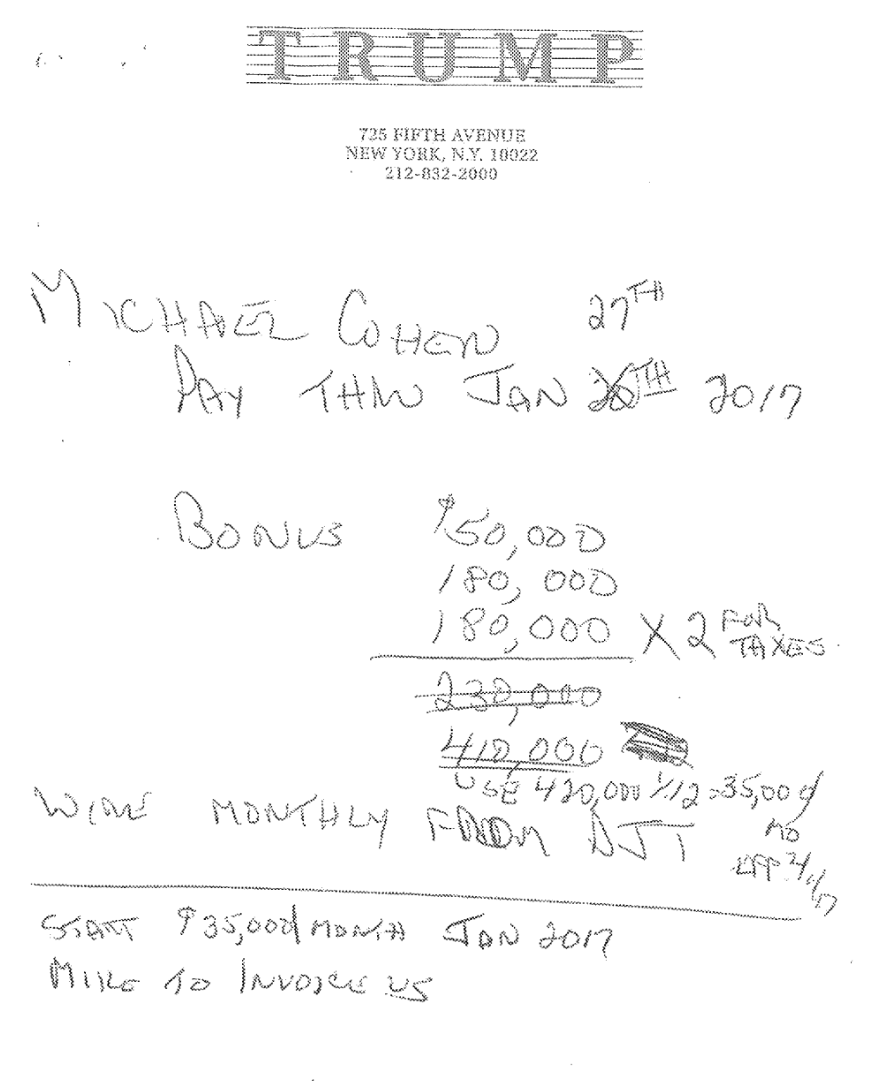 TRUMP
725 FIFTH AVENUE
NEW YORK, N.Y. 10022
212-832-2000
MICHAEL COHEN 27TH
PAY THRU JAN TH 2017
BONUS $50,000
180,000
180,000 X 2 FOR TAXES
230,000
410,000
USE 420,000 ÷ 12 = 35,000/
MO
WIRE MONTHLY FROM DJT
EFF. 2/1/17
START $35,000/MONTH JAN 2017
MIKE TO INVOICE US